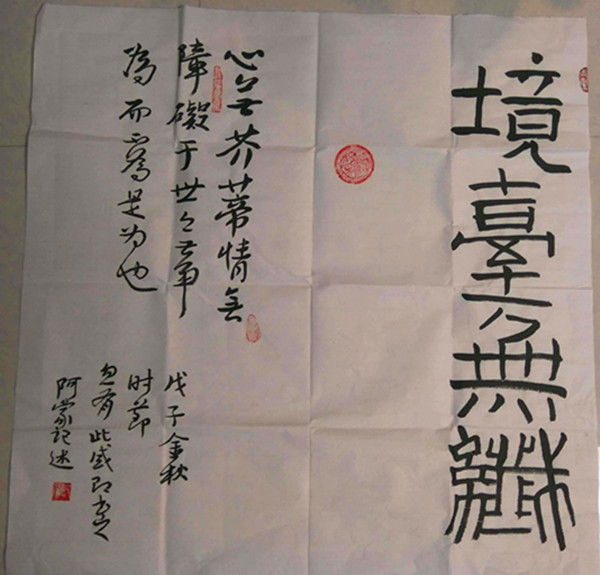 境臺無纖
心無芥蒂情無
障礙于世無爭
為而為是为也
戊子金秋
时節
忽有此感即書之
阿蒙記述